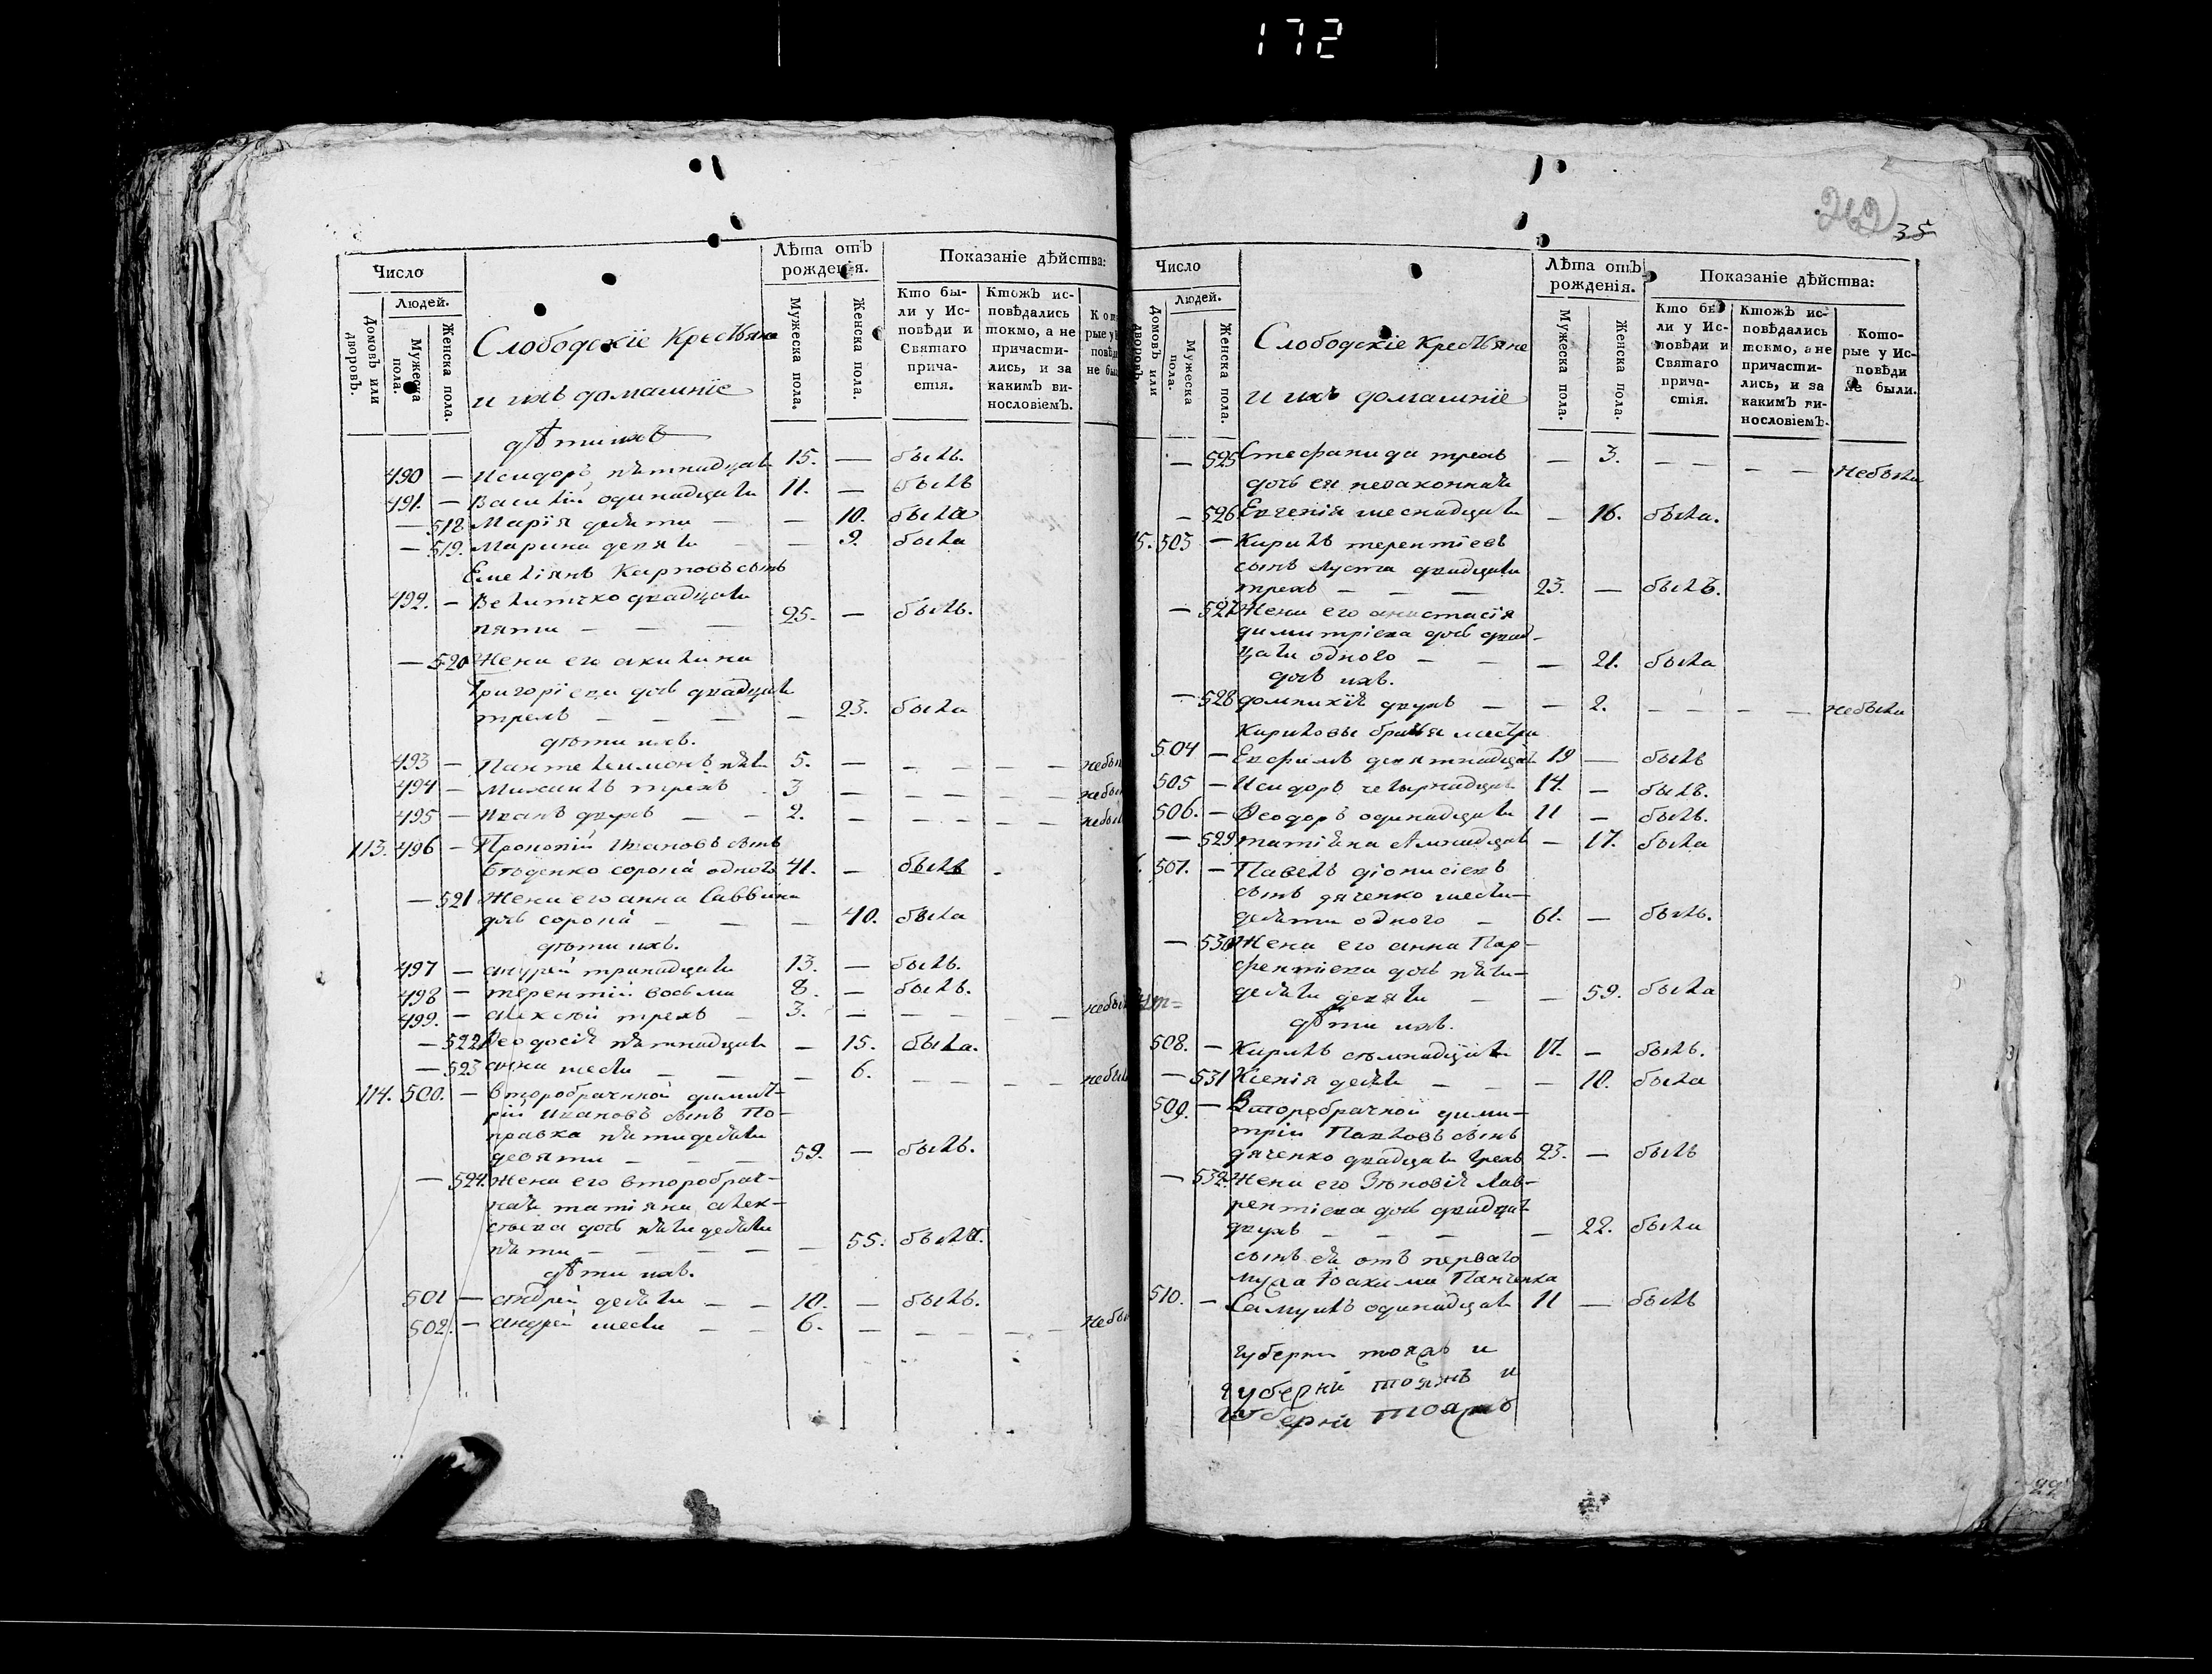 172
262
35
Число
Людей.
Домовъ или дворовъ.
Мужеска пола.
Женска пола.
Слободскіе Крестьяне
и ихъ домашніе
Лѣта отъ рожденія.
Мужеска пола.
Женска пола.
Показаніе дѣйства:
Кто были у Исповѣди и Святаго причастія.
Ктожъ исповѣдались токмо, а не причастились, и за какимъ винословіемъ.
дѣти ихъ
490 — Исидоръ пѣтнадцати 15. — былъ.
491. — Василій одинадцати 11. — былъ
— 518. Марія десяти — — 10. была
— 519. Марина девяти — 9. была
Емеліянъ Карповъ сынъ
492. — Величко двадцати
пяти — — — 25. — былъ.
— 520 Жена его акилина
Григоріева дочь двадцати
трехъ — — — — 23. была
дѣти ихъ.
493 — Пантелиимонъ пѣти 5. — — — — —
494 — Михаилъ трехъ 3 — — — — —
495 — Иванъ двухъ — — 2. — — — — —
113. 496 — Прокопій Ивановъ сынъ
сорока одного 41. — былъ
— 521 Жена его анна Саввина
дочь сорока — — — 40. была
дѣти ихъ.
497 — андрей тринадцати 13. — былъ.
498 — терентій восьми 8. — былъ.
499. — алексѣй трехъ — 3. — — — — —
— 522 Ѳеодосія пѣтнадцати — 15. была.
— 523 анна шести — — — 6. — — — —
114. 500. — второбрачной димит-
рій Ивановъ сынъ По-
правка пѣтидесяти
девяти — — — 59. — былъ.
— 524. Жена его второбрач-
ная татіяна алек-
сѣева дочь пѣтидесяти
пѣти — — — — — 55. была.
дѣти ихъ.
501 — андрей десяти — — 10. — былъ.
502. — андрей шести — — 6. — — — — —
Число
Людей.
Домовъ или дворовъ.
Мужеска пола.
Женска пола.
Слободскіе Крестьяне
и ихъ домашніе
Лѣта отъ рожденія.
Мужеска пола.
Женска пола.
Показаніе дѣйства:
Кто были у Исповѣди и Святаго причастія.
Ктожъ исповѣдались токмо, а не причастились, и за какимъ винословіемъ.
Которые у Исповѣди не были.
— 525 Стефанида трехъ — 3. — — — — небыла
дочь ея незаконная
— 526 Евгенія шеснадцати — 16. была.
503 — Кирилъ терентіевъ
сынъ двадцати
трехъ — — — 23. — былъ.
— 527 Жена его анастасія
димитріева дочь двад-
цати одного — — — 21. была
дочь ихъ.
— 528 домникія двухъ — — 2. — — — — небыла
Кириловы братья
504 — Евфимъ девятнадцати 19 — былъ
505 — Исидоръ четырнадцати 14. — былъ.
506. — Ѳеодоръ одинадцати 11 — былъ.
— 529 татіяна семнадцати — 17. была
507. — Павелъ діонисіевъ
сынъ дяченко шести-
десяти одного — 61. — былъ.
— 530 Жена его анна Пар-
фентіева дочь пѣти-
десяти девяти — — 59. была
дѣти ихъ.
508. — Кирилъ семнадцати 17. — былъ.
— 531 Ксенія десяти — — — 10. была
509. — Второбрачной дими-
трій Павловъ сынъ
дяченко двадцати трехъ 23. — былъ
— 532. Жена его Зѣновія Лав-
рентіева дочь двадцати
двухъ — — — — 22. была
сынъ ея отъ перваго
мужа Іоакима Панченка
510. — Самуилъ одинадцати 11 — былъ